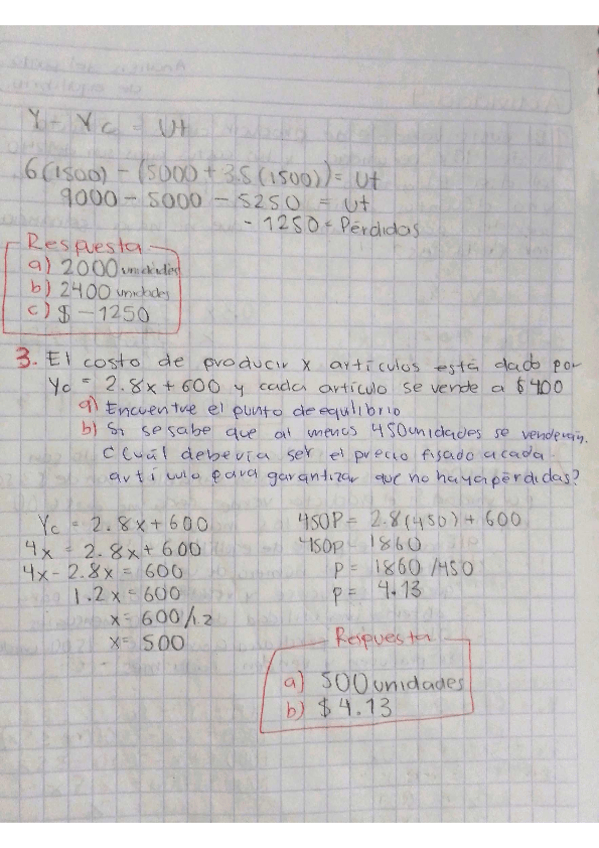 Y - Yc = Ut
6(1500) - (5000 + 3.5(1500)) = Ut
9000 - 5000 - 5250 = Ut
- 1250 = Pérdidas
Respuesta
a) 2000 unidades
b) 2400 unidades
c) $ -1250
3. El costo de producir x artículos está dado por
Yc = 2.8x + 600 y cada artículo se vende a $ 4.00
a) Encuentre el punto de equilibrio
b) Si se sabe que al menos 450 unidades se venderán.
¿Cuál debería ser el precio fijado a cada
artículo para garantizar que no haya pérdidas?
Yc = 2.8x + 600
4x = 2.8x + 600
4x - 2.8x = 600
1.2x = 600
x = 600/1.2
x = 500
450P = 2.8(450) + 600
450P = 1860
P = 1860/450
P = 4.13
Respuesta
a) 500 unidades
b) $ 4.13